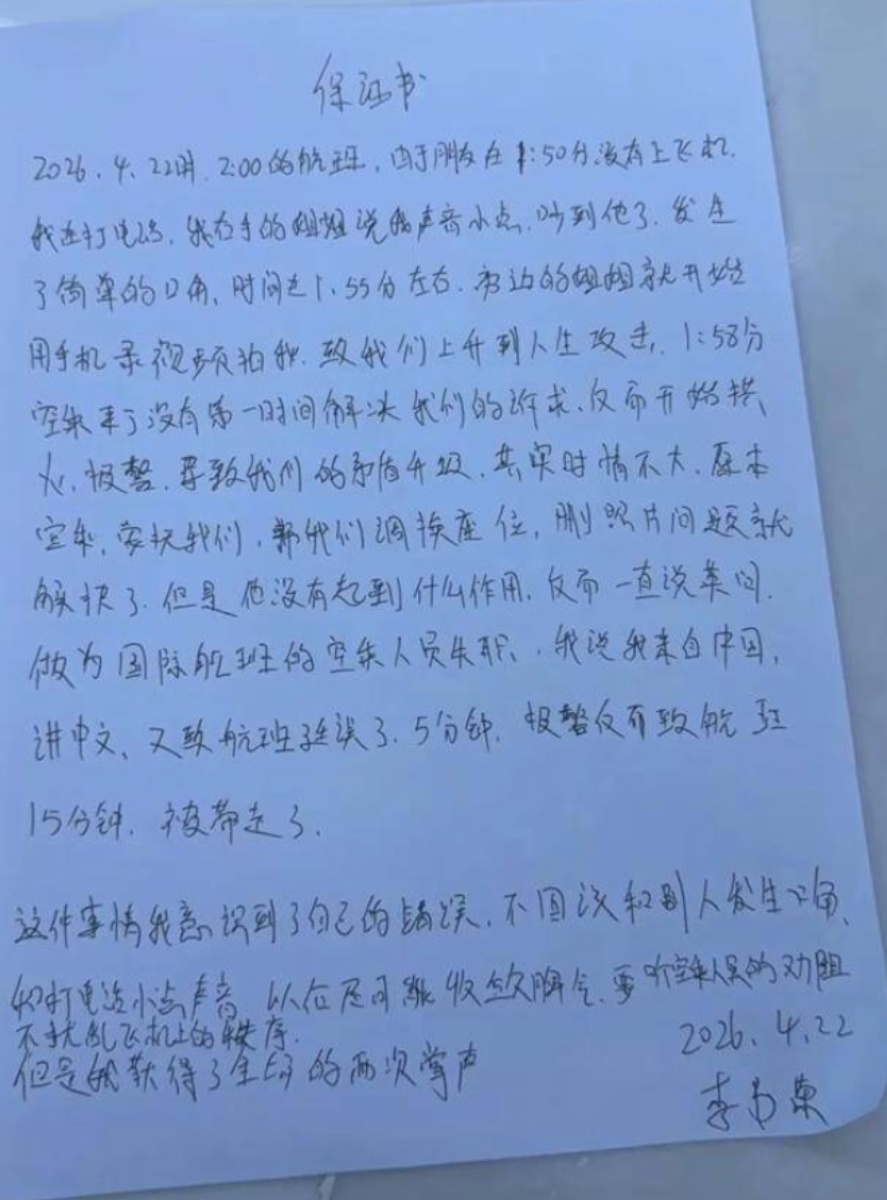 保证书
2026.4.22时.2:00的航班,由于朋友在1:50分没有上飞机.
我在打电话,我右手的姐姐说我声音小点,吵到他了.发生
了简单的口角,时间在1.55分左右.旁边的姐姐就开始
用手机录视频拍我.致我们上升到人生攻击,1:58分
空乘来了没有第一时间解决我们的诉求,反而开始拱
火,报警,导致我们的矛盾升级,其实时情不大.原本
空乘,安抚我们,帮我们调换座位,删照片问题就
解决了.但是他没有起到什么作用.反而一直说英问.
做为国际航班的空乘人员失职,我说我来自中国,
讲中文,又致航班延误了.5分钟.报警反而致航班
15分钟.被带走了.
这件事情我意识到了自己的错误.不因该和别人发生口角、
和打电话小点声音 以后尽可能收敛脾气.要听空乘人员的劝阻
不扰乱飞机上的秩序.
但是我获得了全场的两次掌声
2026.4.22
李